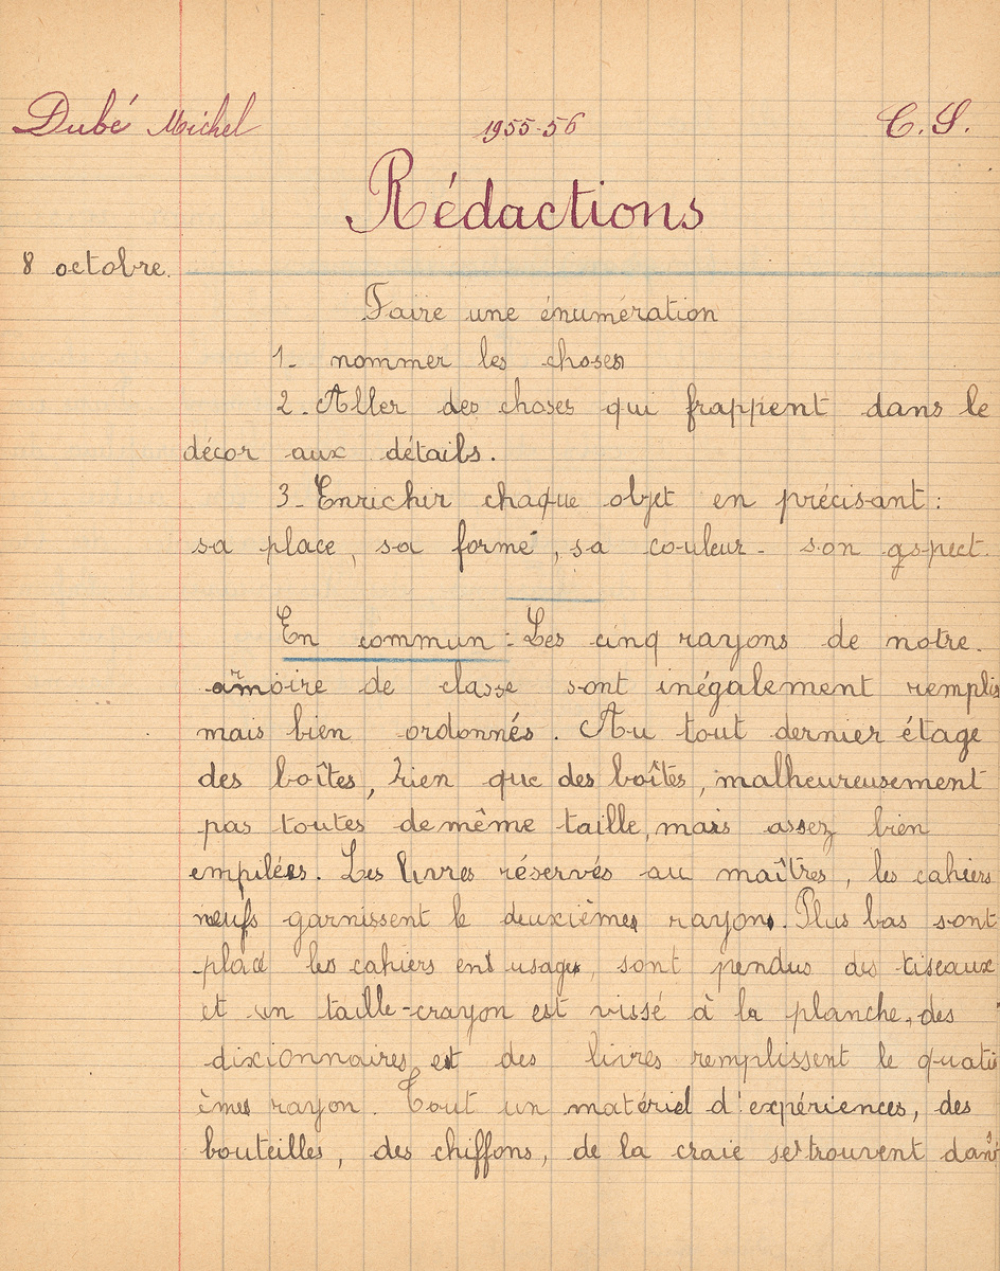 Dubé Michel 1955-56 C.S.
Rédactions
8 octobre.
Faire une énumération
1- nommer les choses
2-Aller des choses qui frappent dans le
décor aux détails.
3-Enrichir chaque objet en précisant :
sa place, sa forme, sa couleur - son aspect.
En commun : Les cinq rayons de notre
armoire de classe sont inégalement remplis
mais bien ordonnés. Au tout dernier étage
des boîtes, rien que des boîtes, malheureusement
pas toutes de même taille, mais assez bien
empilées. Les livres réservés au maîtres, les cahiers
neufs garnissent le deuxièmes rayons. Plus bas sont
placé les cahiers en usage, sont pendus des ciseaux
et un taille-crayon est vissé à la planche, des
dixionnaires et des livres remplissent le quatri
èmes rayon. Tout un matériel d'expériences, des
bouteilles, des chiffons, de la craie se trouvent dans